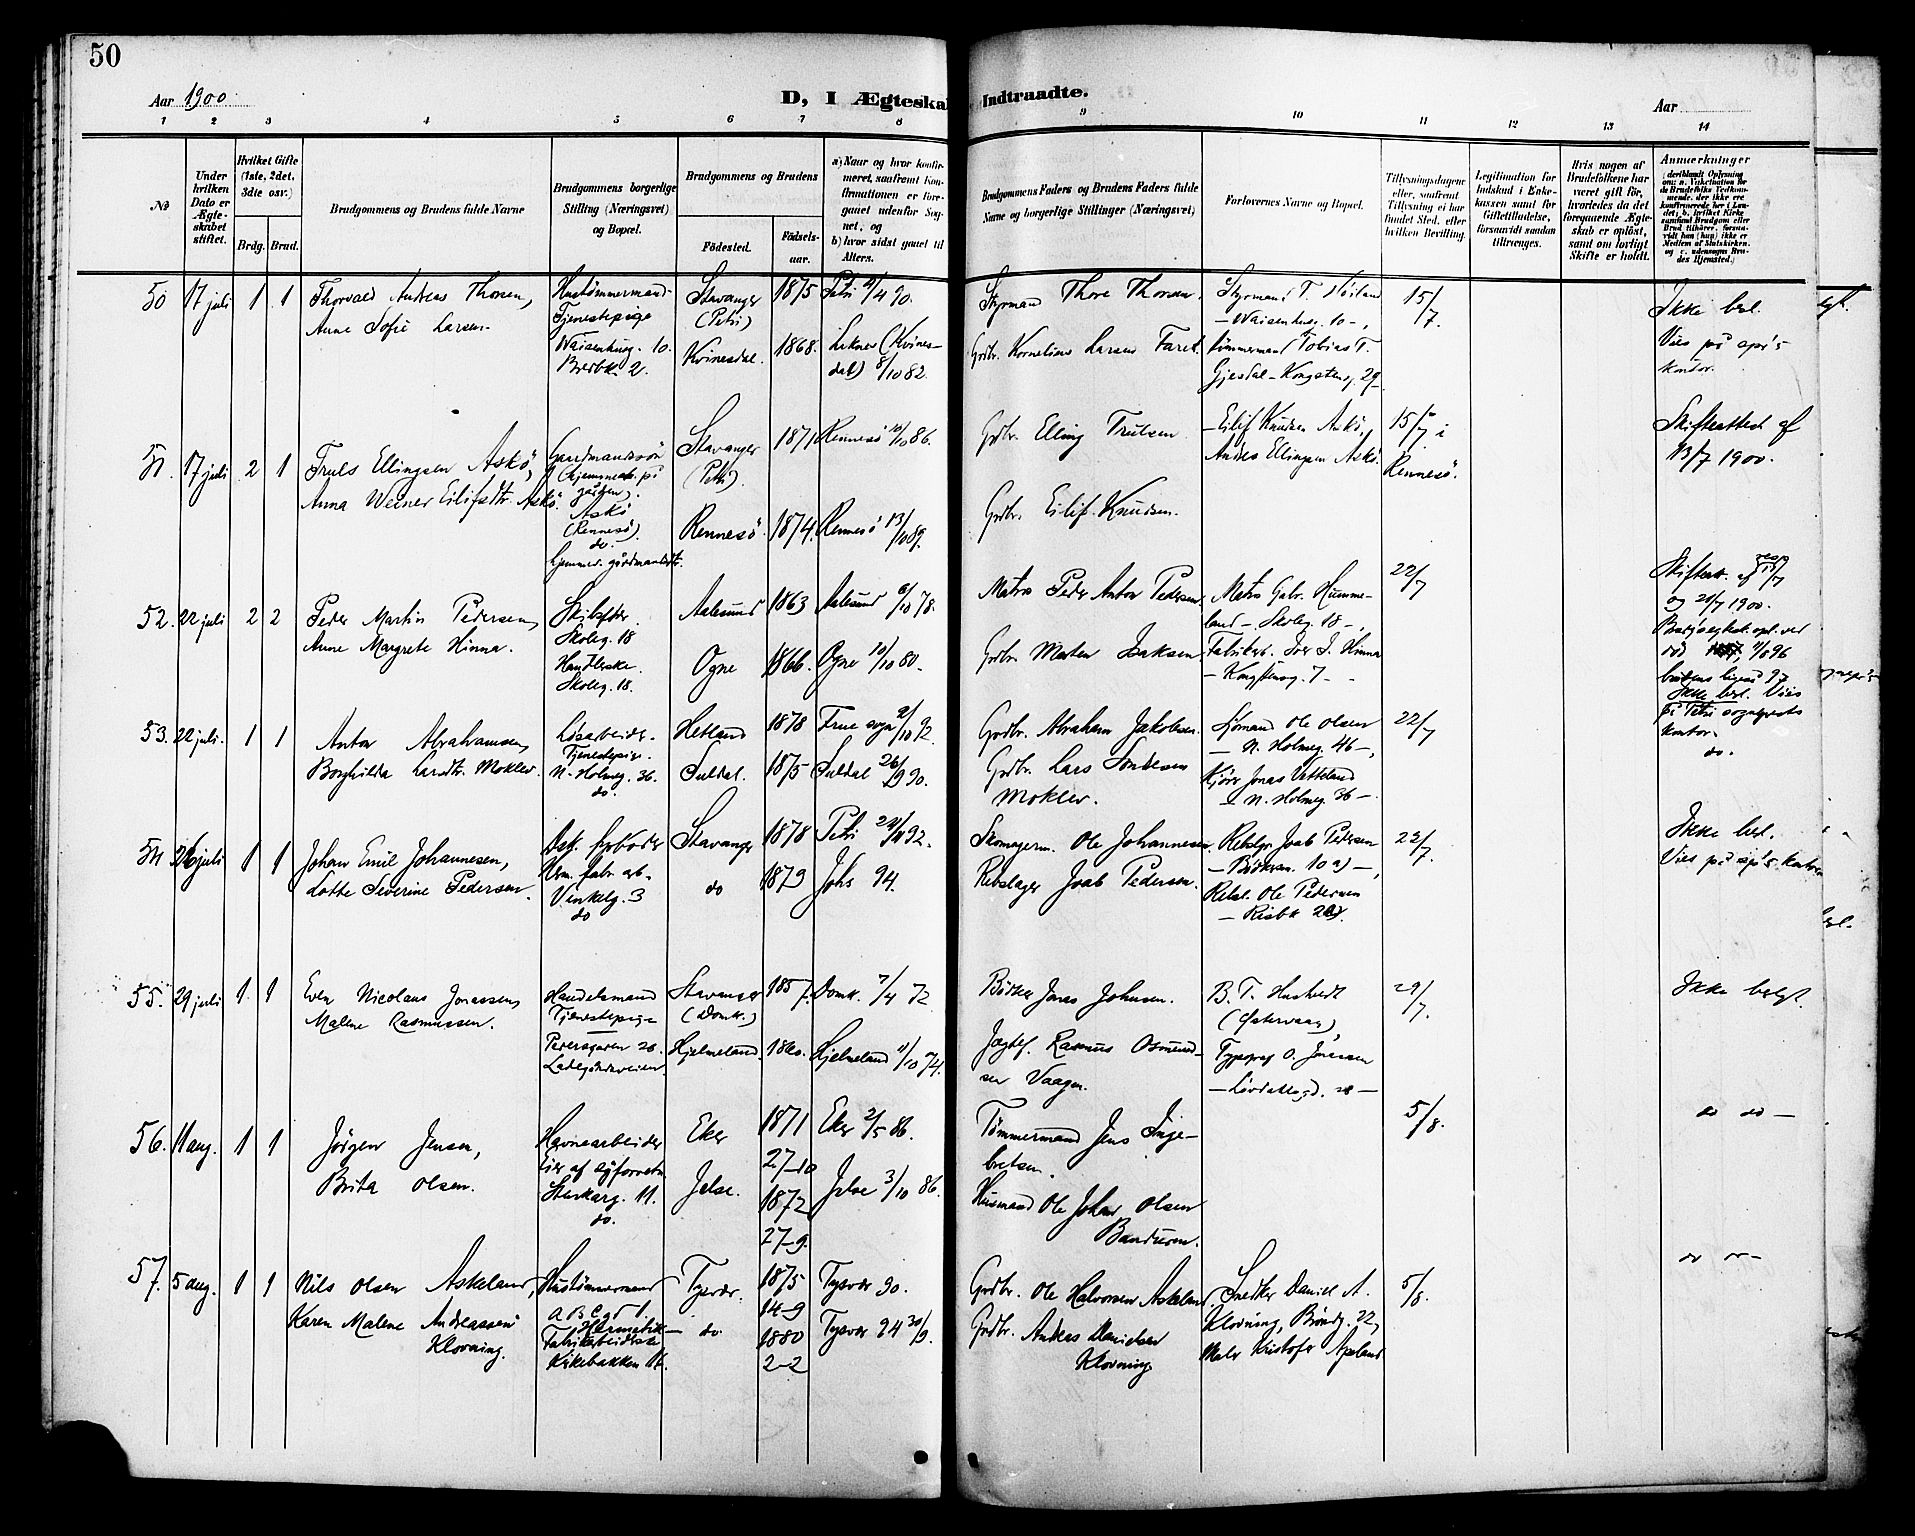 50
Aar 1900
D, I Ægteskab Indtraadte.
Aar
1 2 3 4 5 6 7 8 9 10 11 12 13 14
No
Under hvilken Dato er Ægteskabet stiftet.
Hvilket Gifte (1ste, 2det, 3die osv.)
Brdg. Brud.
Brudgommens og Brudens fulde Navne
Brudgommens borgerlige Stilling (Næringsvei) og Bopæl.
Brudgommens og Brudens
Födested.
Födsels-aar.
a) Naar og hvor konfirmeret, saafremt Konfirmationen er foregaaet udenfor Sognet, og
b) hvor sidst gaaet til Alters.
Brudgommens Faders og Brudens Faders fulde Navne og borgerlige Stillinger (Næringsvei)
Forlovernes Navne og Bopæl.
Tillysningsdagene eller, saafremt Tillysning ei har fundet Sted, efter hvilken Bevilling.
Legitimation for Indskud i Enkekassen samt for Giftetilladelse, forsaavidt saadan tiltrænges.
Hvis nogen af Brudefolkene har været gift för, hvorledes da det foregaaende Ægteskab er oplöst, samt om lovligt Skifte er holdt.
Anmerkninger
50 17 juli 1 1
Thorvald Andreas Thorsen,
Anne Sofie Larsen.
Hustømmermand
Tjenestepige
Waisenhusg. 10.
Bredbk. 2.
Stavanger
(Petri)
Kvinesdal.
1875
1868.
Petri 27/4 90.
Lekner (Kvines-
dal) 8/10 82.
Styrmand Thore Thorsen.
Grdbr. Kornelius Larsen Faret.
Styrmand T. Höiland
- Waisenhusg. 10 -,
tømmermand Tobias T.
Gjesdal - Kongsteng. 29 -
15/7.
Ikke besl.
Vies på spr's
kontor.
51. 17 juli 2 1
Truls Ellingsen Askö,
Anna Weiner Eilifsdtr. Askö.
Gaardmandssön
(hjemmeh. på
gården).
Askö
(Rennesö).
do
hjemmev. gårdmandsdtr.
Stavanger
(Petri).
Rennesö.
1871
1874.
Rennesö 10/10 86.
Rennesö 13/10 89.
Grdbr. Elling Trulsen
Grdbr. Eilif Knudsen.
- Eilif Knudsen Askö,
Andres Ellingsen Askö.
15/7 i
Rennesö.
Skifteattest af
13/7 1900.
52. 22 juli 2 2
Peder Martin Pedersen,
Anne Margrete Hinna.
Skoleg. 18
Skoleg. 18.
Aalesund
Ogne
1863
1866.
Aalesund 6/10 78.
Ogne 10/10 80.
Matros Peder Anton Pedersen.
Grdbr. Morten Isaksen.
Matro Gabr. Humme-
land - Skoleg. 18 -,
Fabrikarb. Iver I. Hinna
- Kongstensg. 7 -
22/7
Skifteat. af 13/7
og 21/7 1900.
Ikke besl. Vies
på Petri sogneprests
kontor.
53. 22 juli. 1 1
Anton Abrahamsen,
Borghilda Larsdtr. Moklev.
Løsarbeider
Tjenestepige.
N. Holmeg. 36.
do.
Hetland
Suldal.
1878
1875
Frue sogn 2/10 92.
Suldal 26/9 90.
Grdbr. Abraham Jakobsen.
Grdbr. Lars Sondresen
Moklev.
Sjømand Ole Olsen
- N. Holmeg. 46 -,
Kjører Jonas Vatteland
N. Holmeg. 36 -.
22/7
do.
54. 26 juli 1 1
Johan Emil Johannesen,
Lotte Severine Pedersen.
Dsk. fyrböder
Hrm. fabr. arb.
Vinkelg. 3
do
Stavanger
do
1878
1879
Petri 24/4 92.
Johs 94.
Skomagerm. Ole Johannesen.
Rebslager Joab Pedersen.
Rebslgr. Joab Pedersen
- Bødkersm. 10 a) -,
Rebsl. Ole Pedersen
- Risbk 22.
22/7.
Ikke besl.
Vies på spr's kontor
55. 29 juli 1 1
Even Nicolaus Jonassen,
Malene Rasmussen.
Handelsmand
Tjenestepige
Pedersgaden 20.
Ladegårdsveien.
Stavanger
(Domk.)
Hjelmeland.
1857.
1860.
Domk. 7/4 72
Hjelmeland 11/10 74.
Bödker Jonas Johnsen.
Jagtef. Rasmus Osmund-
sen Vaagen.
B. T. Hustvedt
(Østervaag),
Typograf O. Jonassen
- Lövdahlsgd. 28 -
29/7.
Ikke beslgt.
56. 11 aug. 1 1
Jörgen Jensen,
Brita Olsen.
Havnearbeider
Eier af syforretn.
Starkarg. 11.
do.
Eker
Jelse.
1871
27-10
1872
27-9.
Eker 2/5 86.
Jelse 3/10 86.
Tömmermand Jens Inge-
bretsen.
Husmand Ole Johan Olsen
Bandusen.
5/8.
do do -
57. 5 aug. 1 1
Nils Olsen Askeland,
Karen Malene Andreassen
Klovning.
Hustömmermand
A B C gd 1.
Hermetik-
Fabrikarbeiderske
Kirkebakken 16.
Tysvær.
do.
1875
14-9
1880
2-2
Tysvær 90.
Tysvær 94 30/9.
Grdbr. Ole Halvorsen Askeland.
Grdbr. Andreas Danielsen
Klovning
Snedker Daniel A.
Klovning, Bröndg. 22,
Maler Kristofer Apeland
5/8.